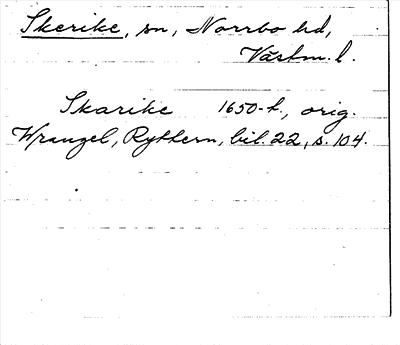 Skerike, sn, Norrbo hd,
Västm. l.
Skarike 1650-t., orig.
Wrangel, Rythern, bil. 22, s. 104.